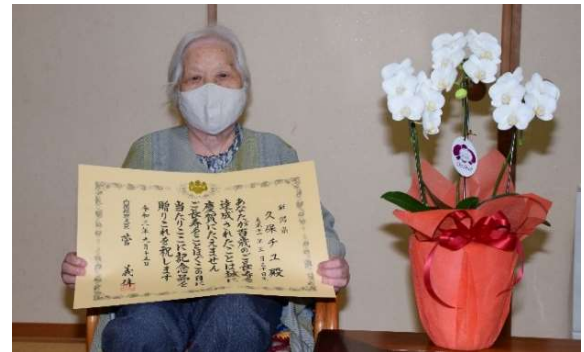 久保チユ殿
あなたが百歳のご長寿を
達成されたことは誠に
慶賀にたえません
ご長寿をことほぐこの日に
当たりここに記念品を
贈りこれを祝します
令和三年九月十五日
内閣総理大臣 菅 義偉